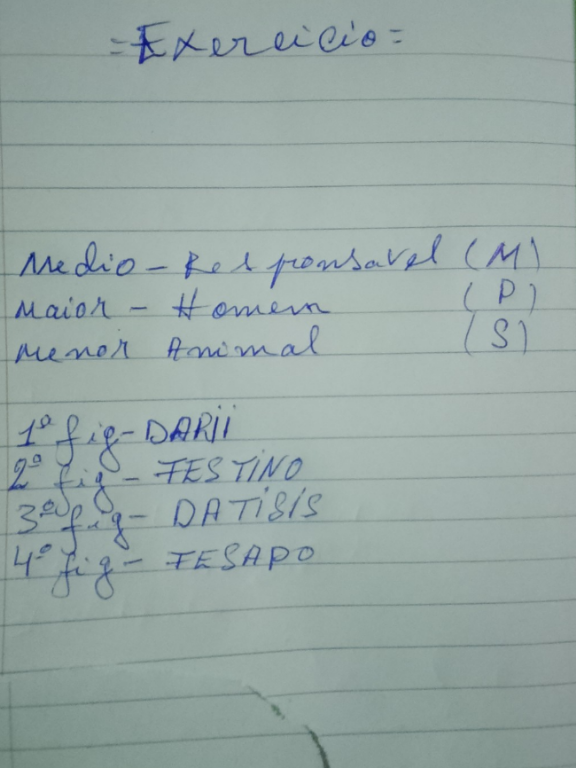 =Exercicio=
Medio - Responsavel (M)
Maior - Homem (P)
Menor Animal (S)
1ª fig - DARII
2ª fig - FESTINO
3ª fig - DATISIS
4ª fig - FESAPO